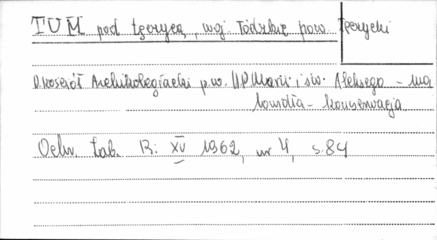 TUM pod Łęczycą, woj. łódzkie pow. łęczycki
Kościół Archikolegiacki p.w. NPMarii i św. Aleksego -
konserwacja
Ochr. Zab. R: XV 1962, nr 4, s.84